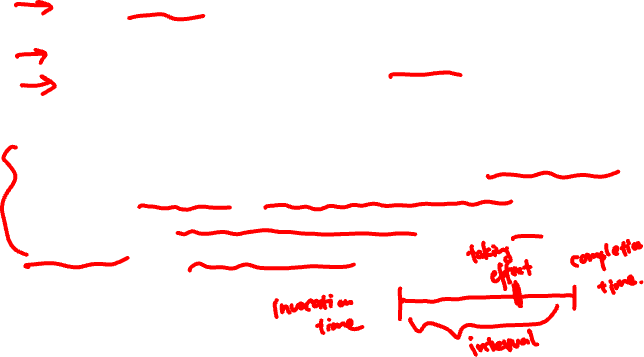 taking
effect
completion
time.
Invocation
time
interval